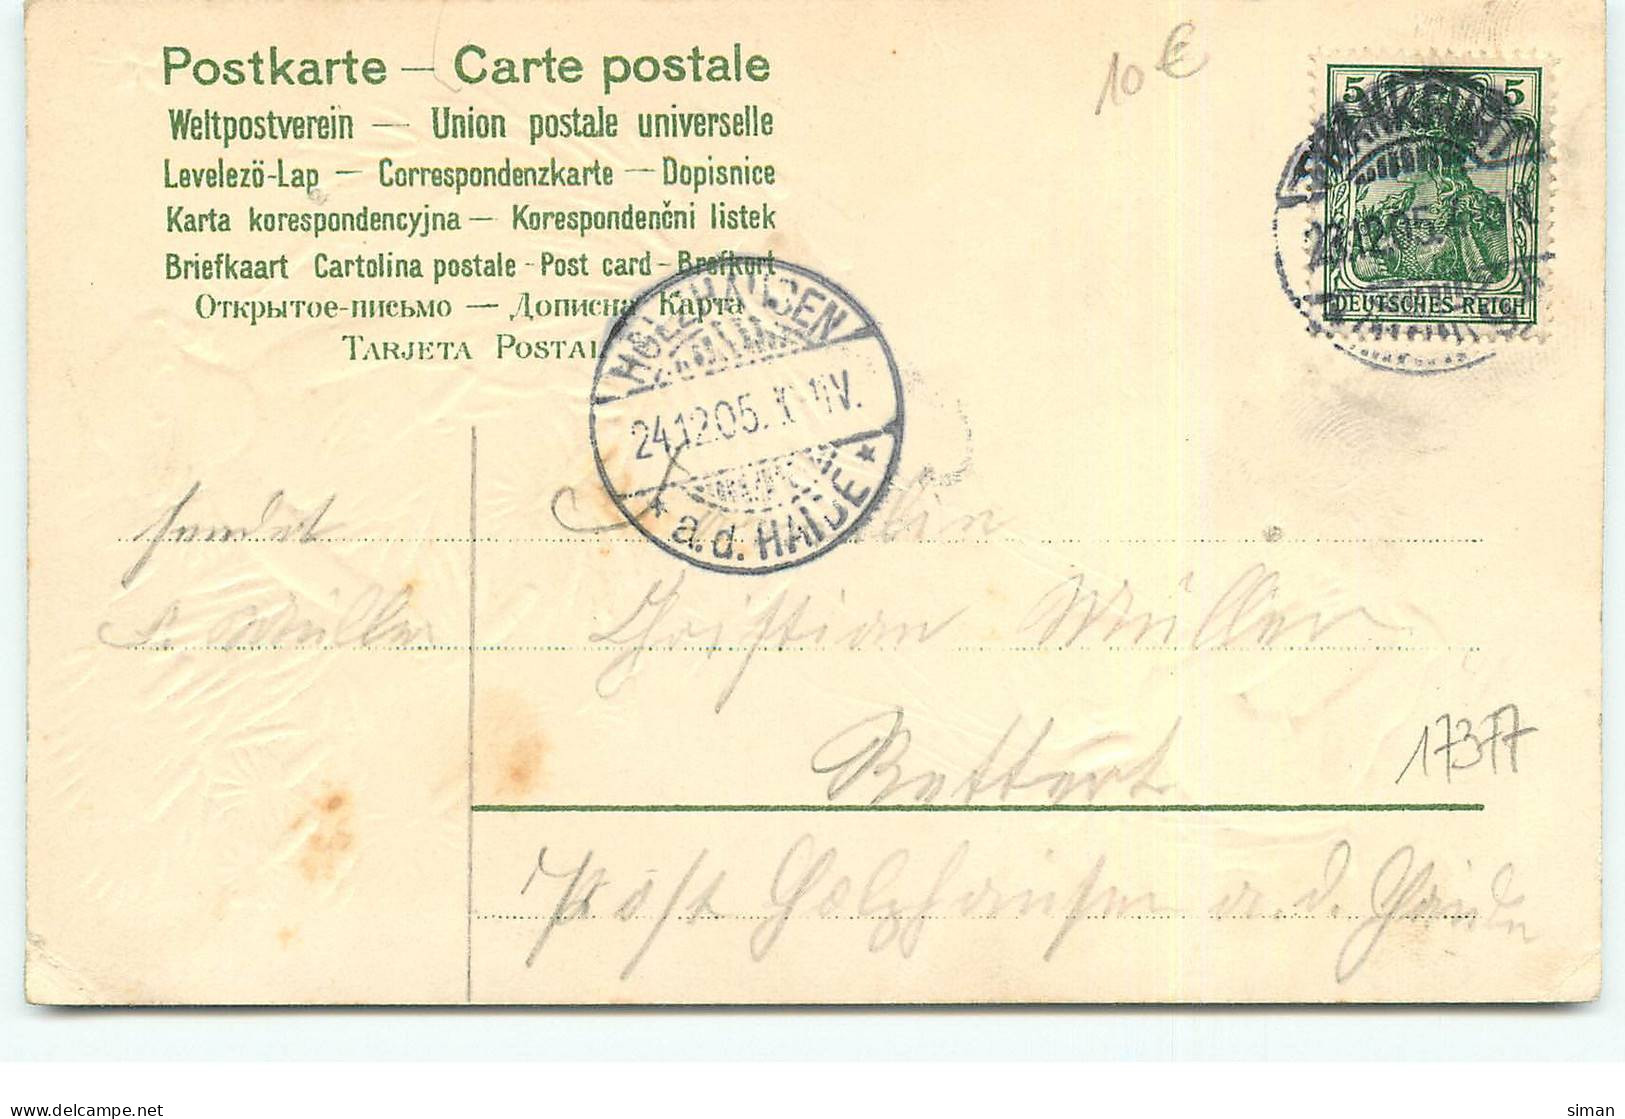 Postkarte – Carte postale
Weltpostverein — Union postale universelle
Levelezö-Lap — Correspondenzkarte — Dopisnice
Karta korespondencyjna — Korespondenčni listek
Briefkaart Cartolina postale - Post card - Brefkort
Открытое-письмо — Дописна Карта
TARJETA POSTAL
10 €
5 5
FRANKFURT
23.12.05.
DEUTSCHES REICH
HOLZHAUSEN
24.12.05. V.
* a.d. HAIDE *
sendet
Müller
Christian Müller
Rettert
Post Holzhausen a. d. Haide
17377
delcampe.net
siman